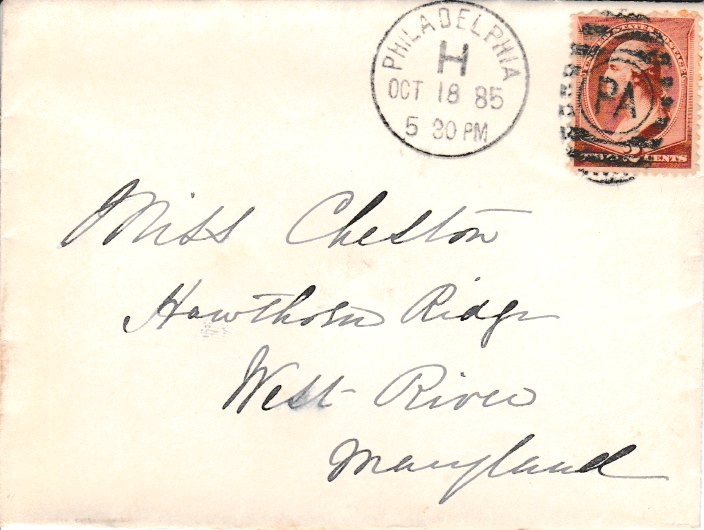 PHILADELPHIA
H
OCT 18 85
5 30 PM
PA
2 CENTS
Miss Cheston
Hawthorn Ridge
West River
Maryland